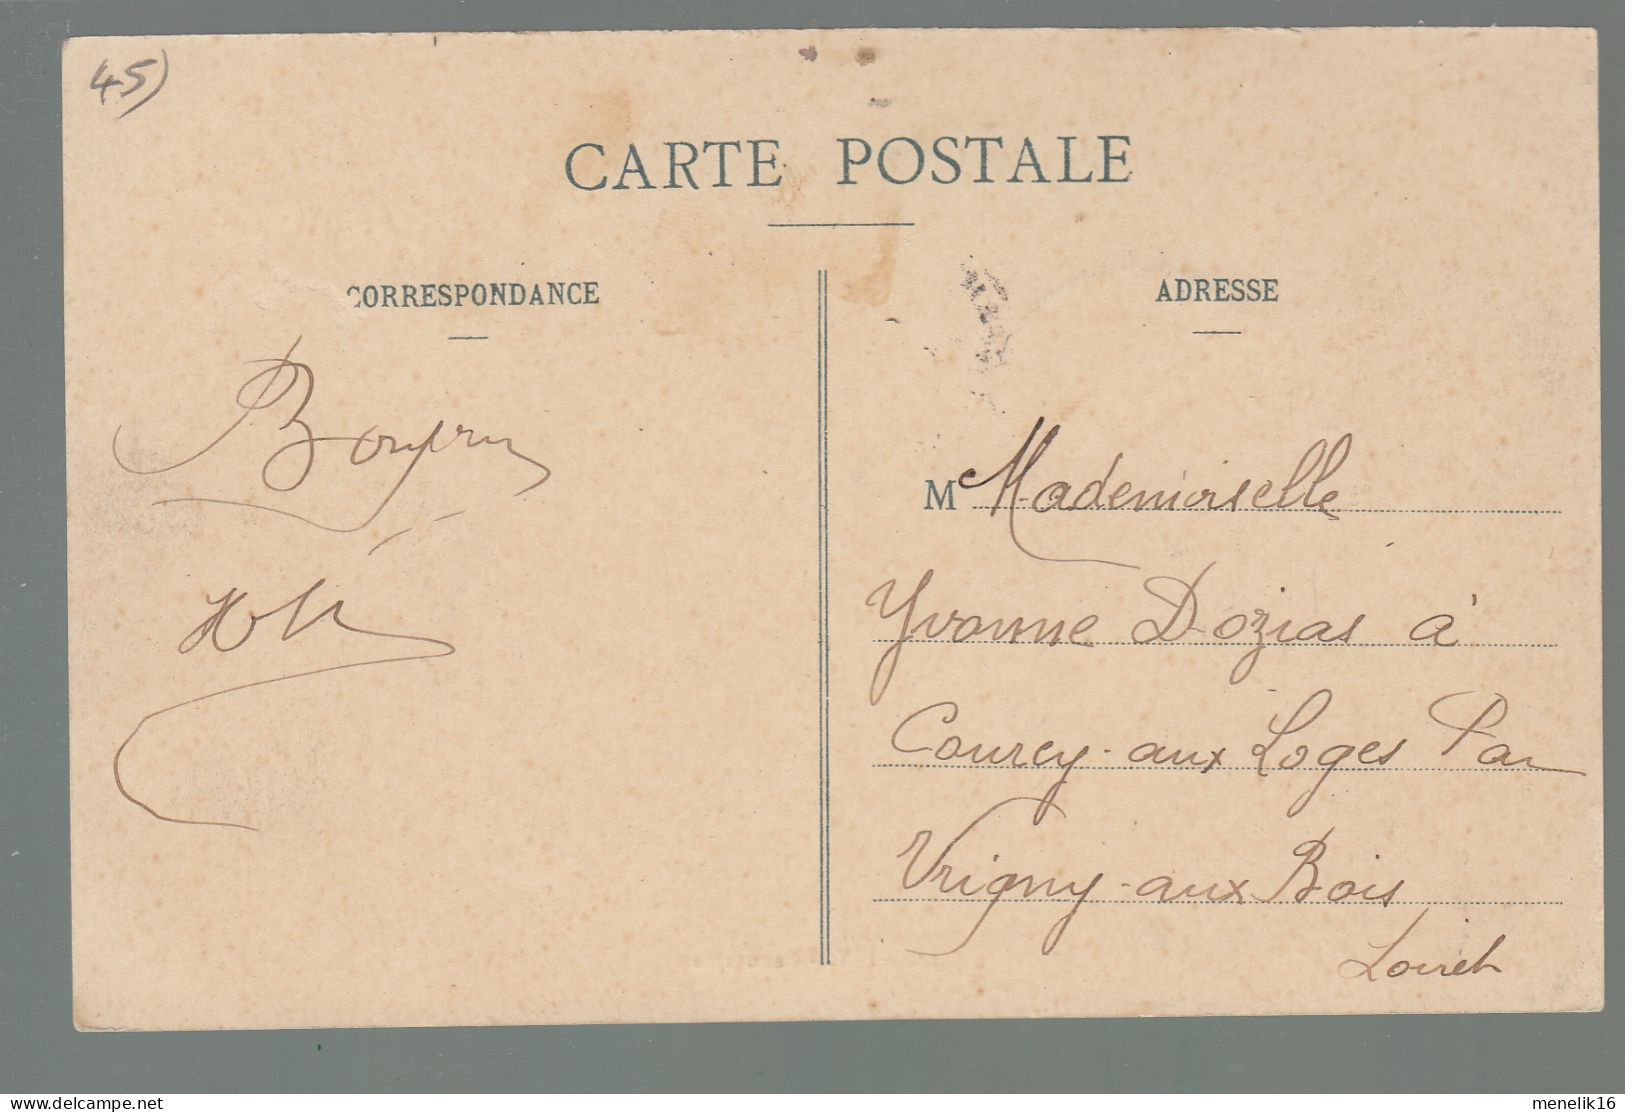 45)
CARTE POSTALE
CORRESPONDANCE
ADRESSE
M Mademoiselle
Yvonne Dozias à
Courcy-aux Loges Par
Vrigny-aux Bois
Loiret
www.delcampe.net
menelik16